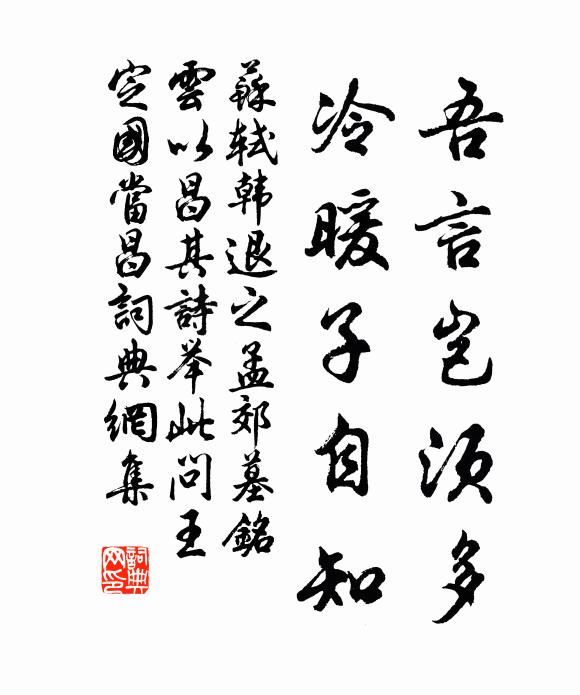 吾言豈須多
冷暖子自知
蘇軾韩退之孟郊墓銘
雲以昌其詩举此问王
定國當昌詞典網集
詞典网印